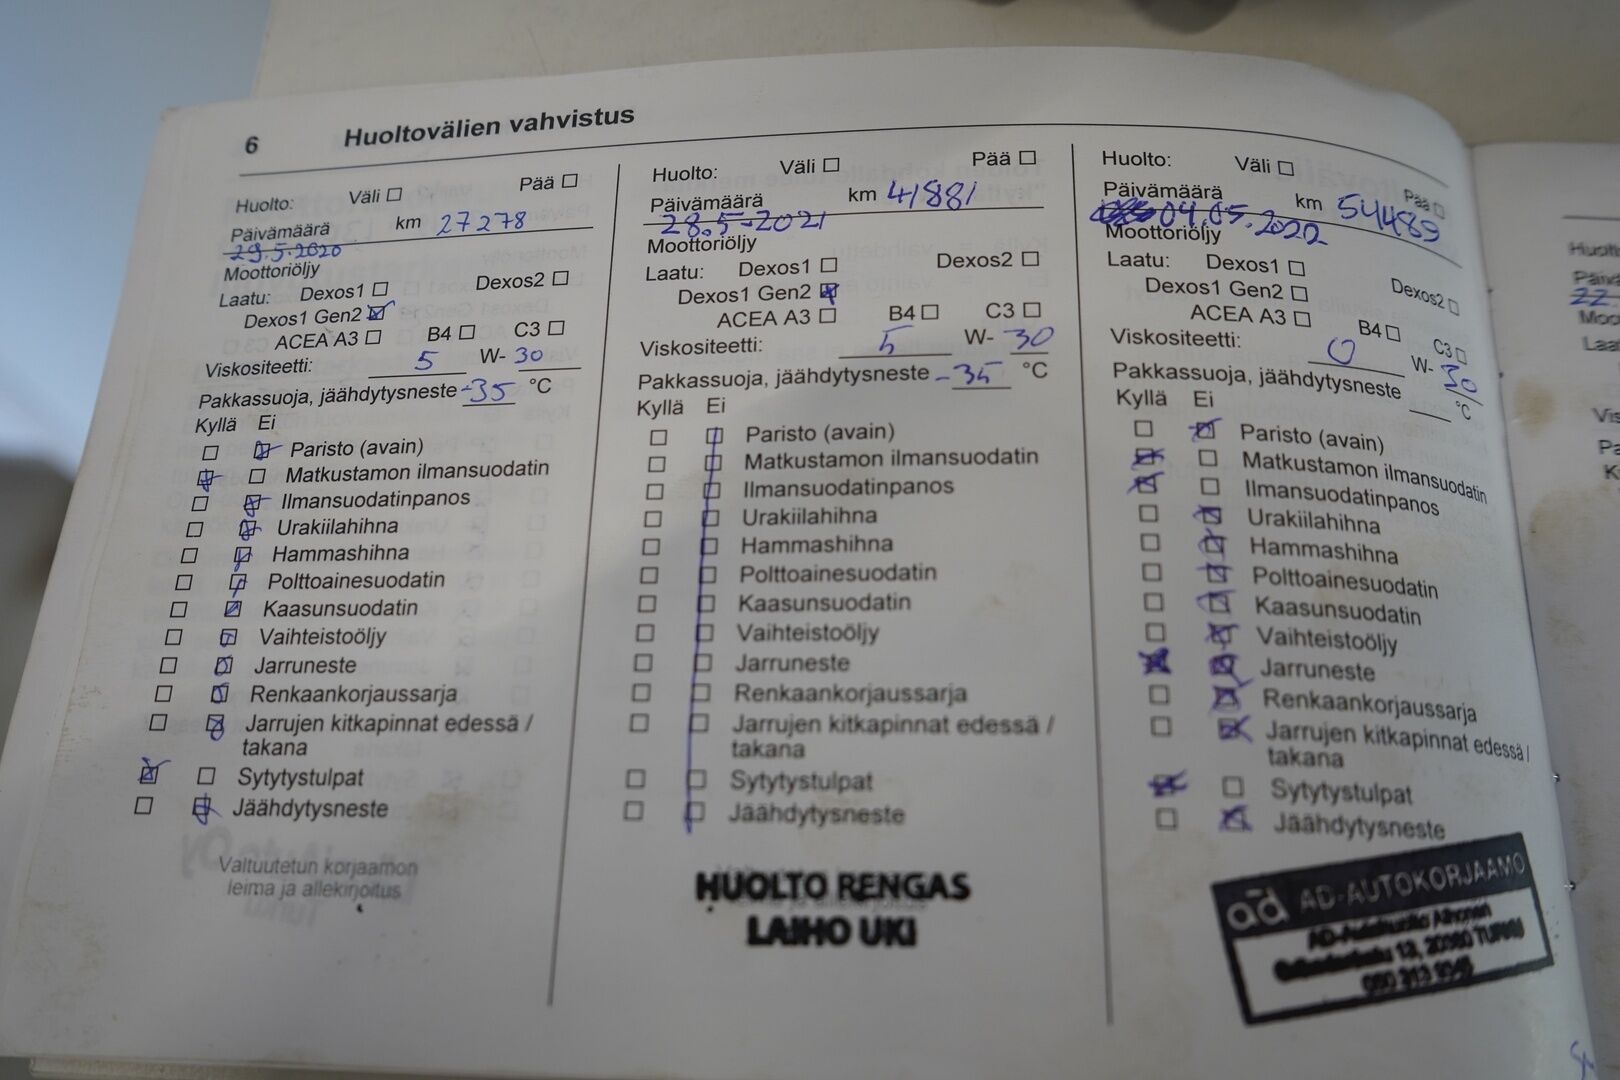 6 Huoltovälien vahvistus
Huolto: Väli Pää
Päivämäärä km 27278
29.5.2020
Moottoriöljy
Laatu: Dexos1 Dexos2
Dexos1 Gen2
ACEA A3 B4 C3
Viskositeetti: 5 W- 30
Pakkassuoja, jäähdytysneste -35 °C
Kyllä Ei
Paristo (avain)
Matkustamon ilmansuodatin
Ilmansuodatinpanos
Urakiilahihna
Hammashihna
Polttoainesuodatin
Kaasunsuodatin
Vaihteistoöljy
Jarruneste
Renkaankorjaussarja
Jarrujen kitkapinnat edessä /
takana
Sytytystulpat
Jäähdytysneste
Valtuutetun korjaamon
leima ja allekirjoitus
Huolto: Väli Pää
Päivämäärä km 41881
28.5-2021
Moottoriöljy
Laatu: Dexos1 Dexos2
Dexos1 Gen2
ACEA A3 B4 C3
Viskositeetti: 5 W- 30
Pakkassuoja, jäähdytysneste -35 °C
Kyllä Ei
Paristo (avain)
Matkustamon ilmansuodatin
Ilmansuodatinpanos
Urakiilahihna
Hammashihna
Polttoainesuodatin
Kaasunsuodatin
Vaihteistoöljy
Jarruneste
Renkaankorjaussarja
Jarrujen kitkapinnat edessä /
takana
Sytytystulpat
Jäähdytysneste
HUOLTO RENGAS
LAIHO UKI
Huolto: Väli Pää
Päivämäärä km 54489
04.05.2022
Moottoriöljy
Laatu: Dexos1 Dexos2
Dexos1 Gen2
ACEA A3 B4 C3
Viskositeetti: 0 W- 30
Pakkassuoja, jäähdytysneste °C
Kyllä Ei
Paristo (avain)
Matkustamon ilmansuodatin
Ilmansuodatinpanos
Urakiilahihna
Hammashihna
Polttoainesuodatin
Kaasunsuodatin
Vaihteistoöljy
Jarruneste
Renkaankorjaussarja
Jarrujen kitkapinnat edessä /
takana
Sytytystulpat
Jäähdytysneste
ad AD-AUTOKORJAAMO
TURKU